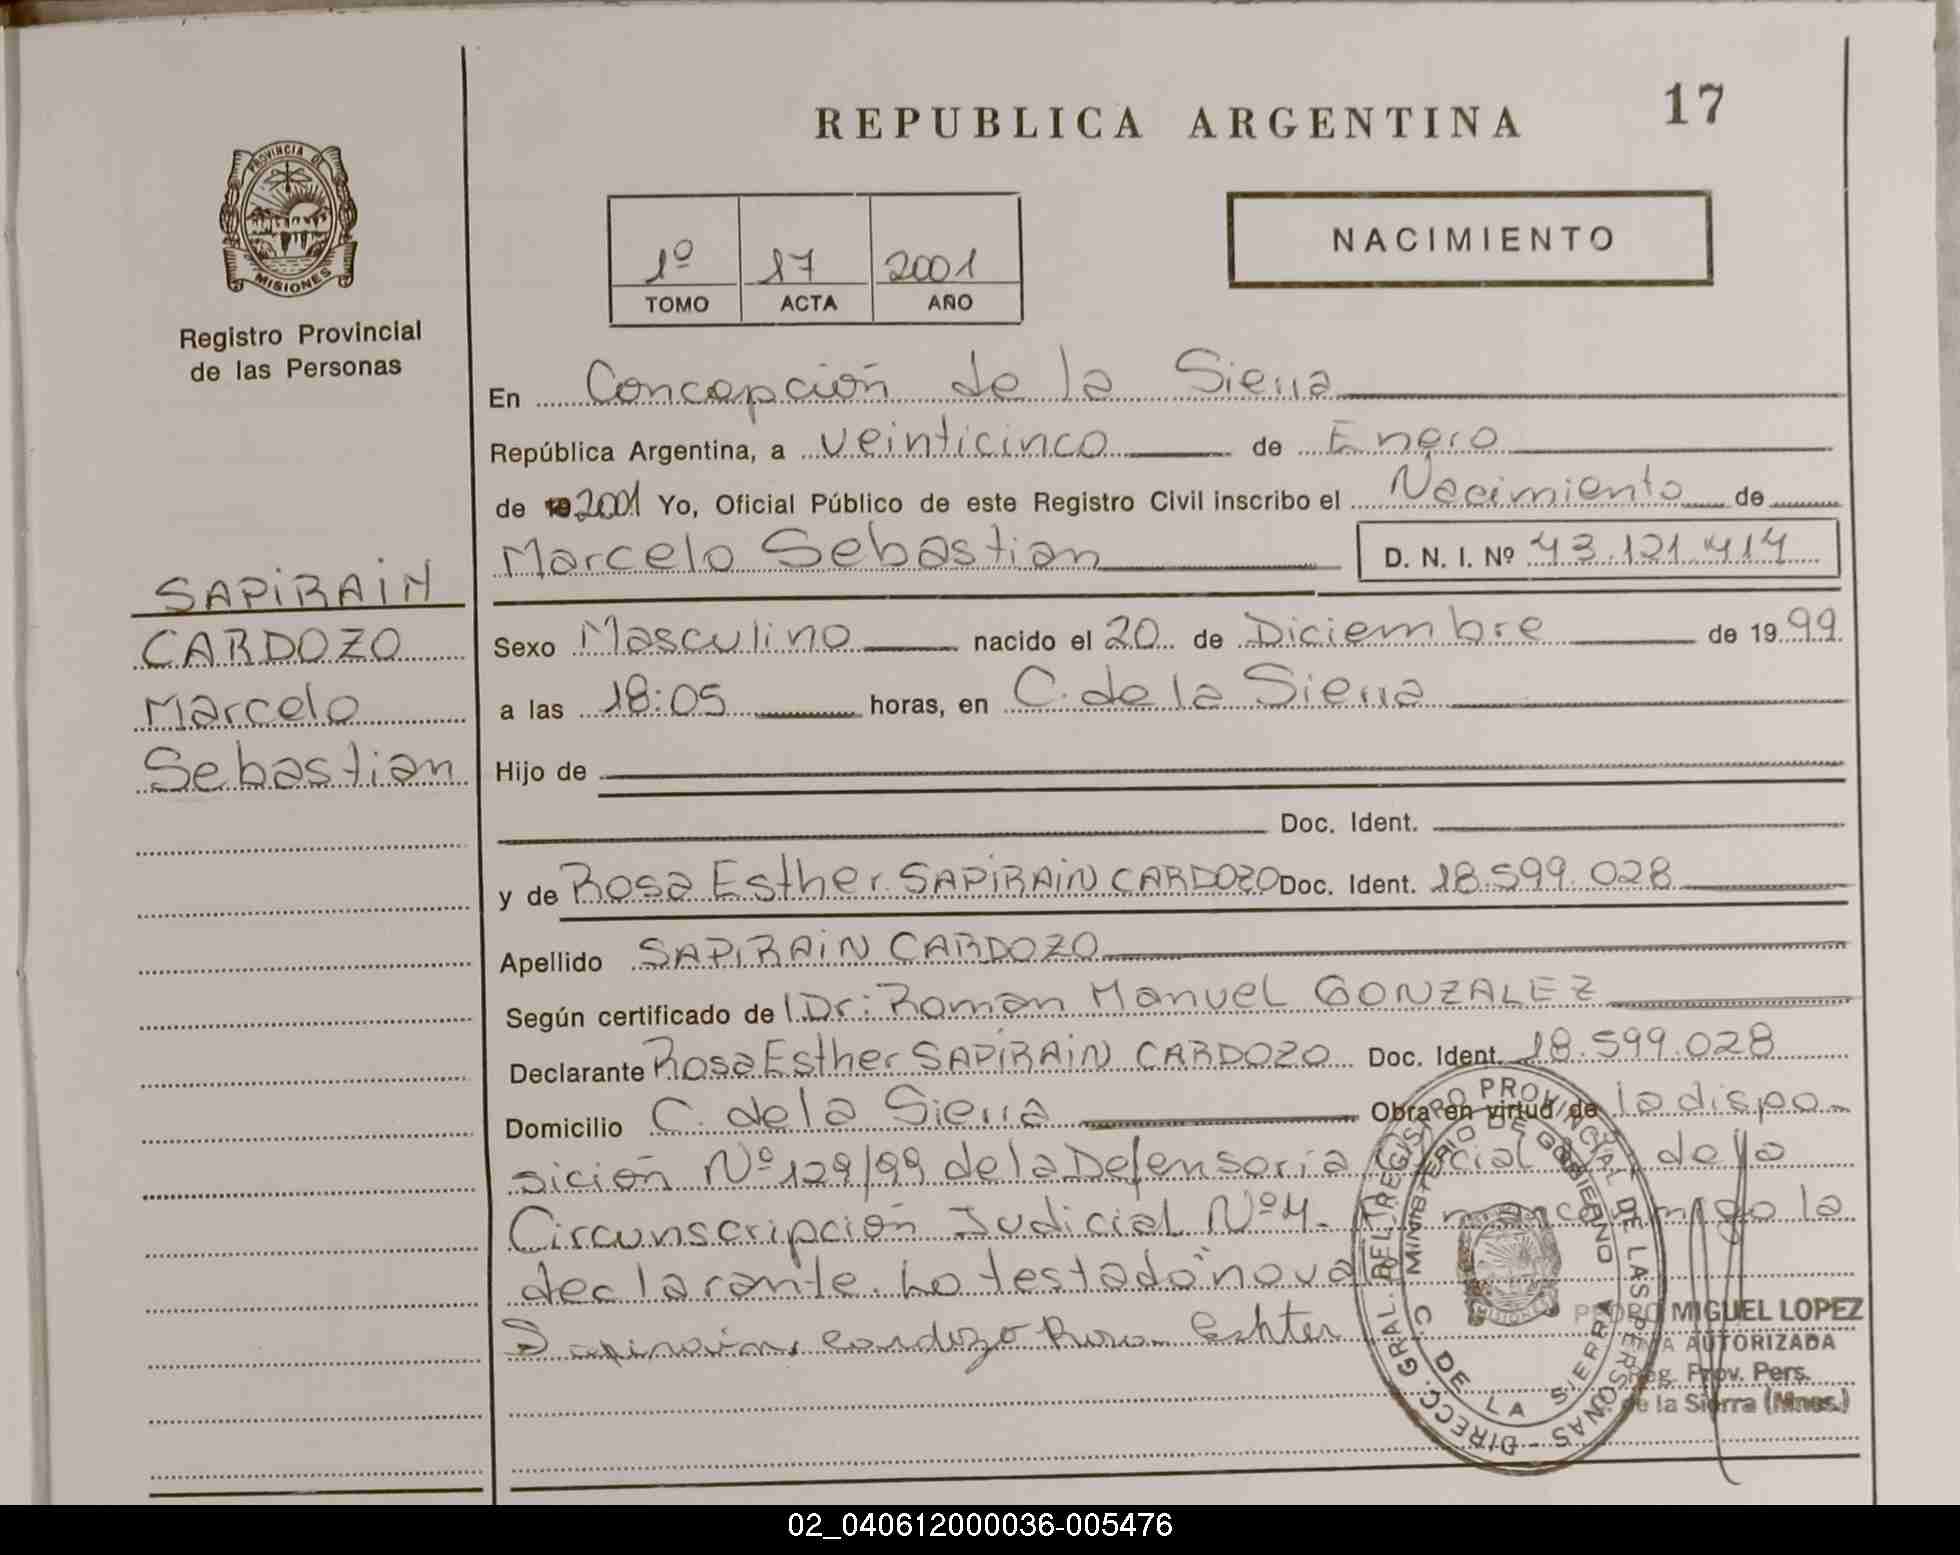 REPUBLICA ARGENTINA
17
PROVINCIA DE
MISIONES
Registro Provincial
de las Personas
1º 17 2001
TOMO ACTA AÑO
NACIMIENTO
En Concepción de la Sierra
República Argentina, a veinticinco de Enero
de 19 2001 Yo, Oficial Público de este Registro Civil inscribo el Nacimiento de
Marcelo Sebastian D. N. I. Nº 43.121.414
SAPIRAIN
CARDOZO
Marcelo
Sebastian
Sexo Masculino nacido el 20 de Diciembre de 1999
a las 18:05 horas, en C. de la Sierra
Hijo de
Doc. Ident.
y de Rosa Esther SAPIRAIN CARDOZO Doc. Ident. 18.599.028
Apellido SAPIRAIN CARDOZO
Según certificado de Dr: Roman Manuel GONZALEZ
Declarante Rosa Esther SAPIRAIN CARDOZO Doc. Ident. 18.599.028
Domicilio C. de la Sierra Obra en virtud de la dispo-
sición Nº 129/99 de la Defensoria de la
Circunscripción Judicial Nº 4. la
declarante. Lo testado "no vale"
Sapirain cardozo Rosa Eshter
DIRECC. GRAL. DEL REGISTRO PROVINCIAL DE LAS PERSONAS
MINISTERIO DE GOBIERNO
C DE LA SIERRA
PEDRO MIGUEL LOPEZ
AUTORIZADA
Reg. Prov. Pers.
de la Sierra (Mnes.)
02_040612000036-005476